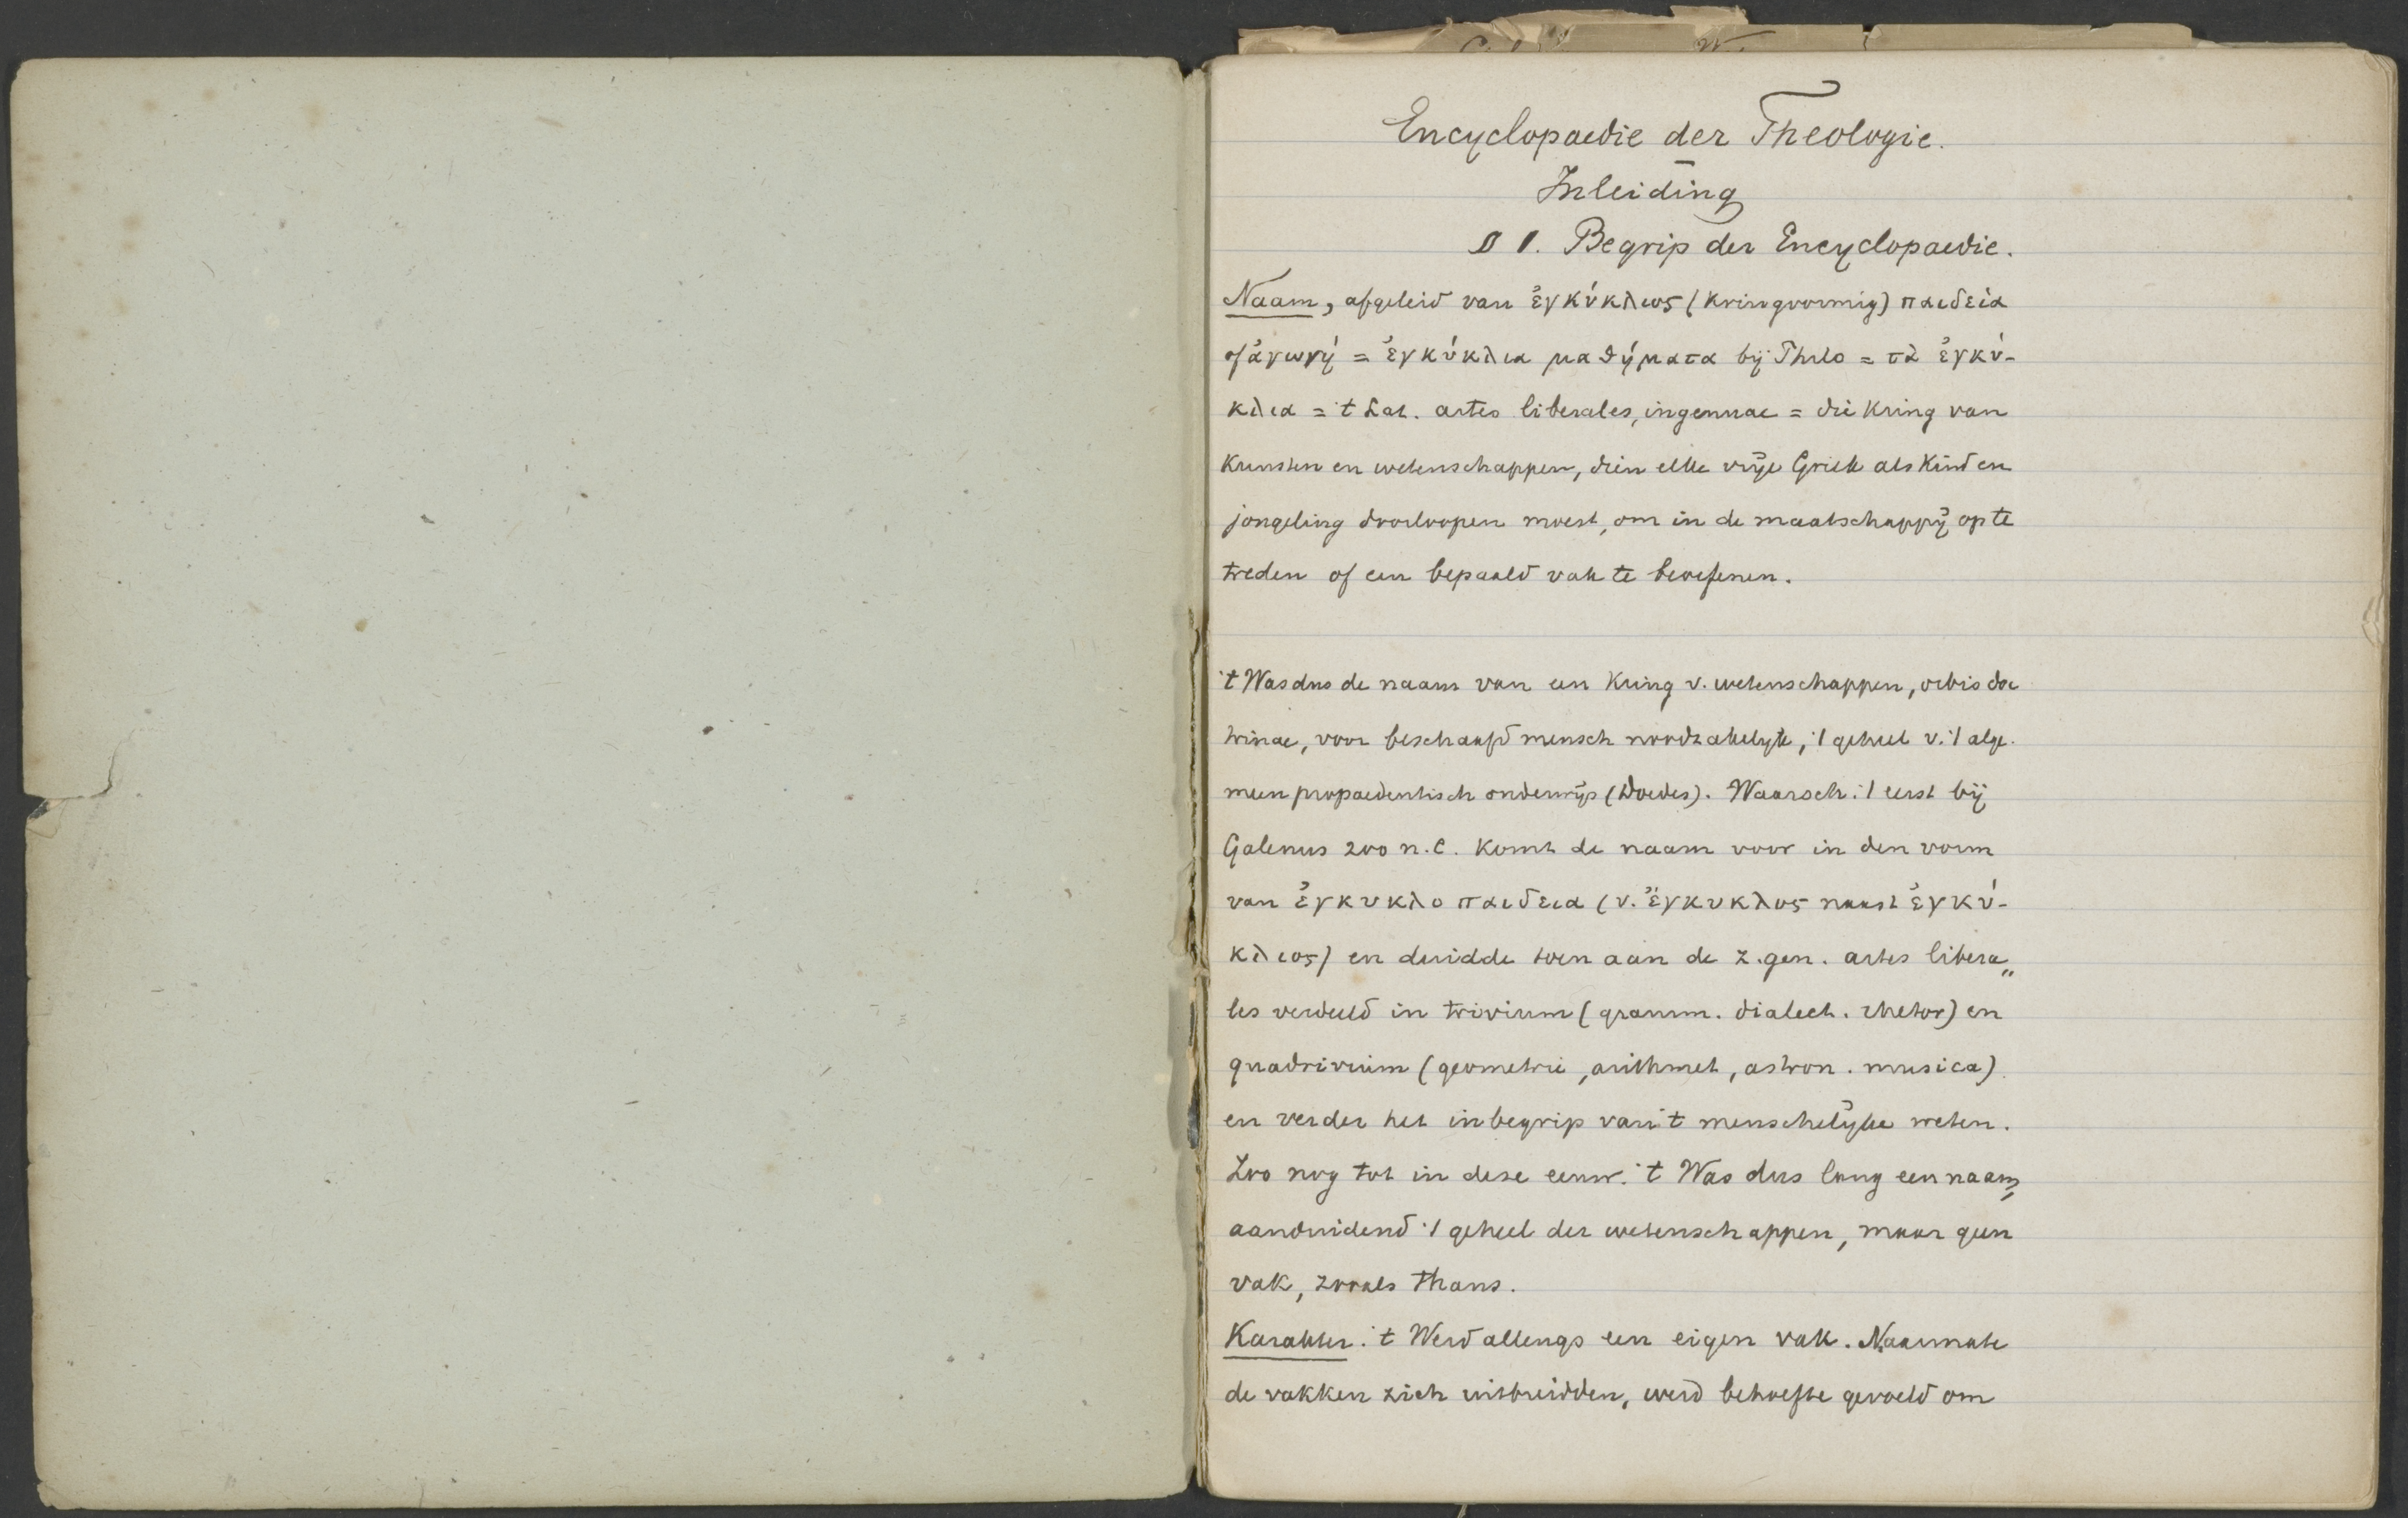 Encyclopaedie der Theologie.
Inleiding
§ 1. Begrip der Encyclopaedie.
Naam, afgeleid van ἐγκύκλιος (kringvormig) παιδεία
of ἀγωγή = ἐγκύκλια μαθήματα bij Philo = τὰ ἐγκύ-
κλια = 't Lat. artes liberales, ingenuae = die kring van
kunsten en wetenschappen, dien elke vrije Griek als kind en
jongeling doorloopen moest, om in de maatschappij op te
treden of een bepaald vak te beoefenen.
't Was dus de naam van een kring v. wetenschappen, orbis doc
trinae, voor beschaafd mensch noodzakelijk, 't geheel v. 't alge-
meen propaedeutisch onderwijs (Doedes). Waarsch. 't eerst bij
Galenus 200 n.C. komt de naam voor in den vorm
van ἐγκυκλοπαιδεια (v. ἔγκυκλος naast ἐγκύ-
κλιος) en duidde toen aan de z.gen. artes libera„
les verdeeld in trivium (gramm. dialect. rhetor) en
quadrivium (geometrie, arithmet, astron. musica)
en verder het inbegrip van 't menschelijke weten.
Zoo nog tot in deze eeuw. 't Was dus lang een naam,
aanduidend 't geheel der wetenschappen, maar geen
vak, zooals thans.
Karakter. 't Werd allengs een eigen vak. Naarmate
de vakken zich uitbreidden, werd behoefte gevoeld om